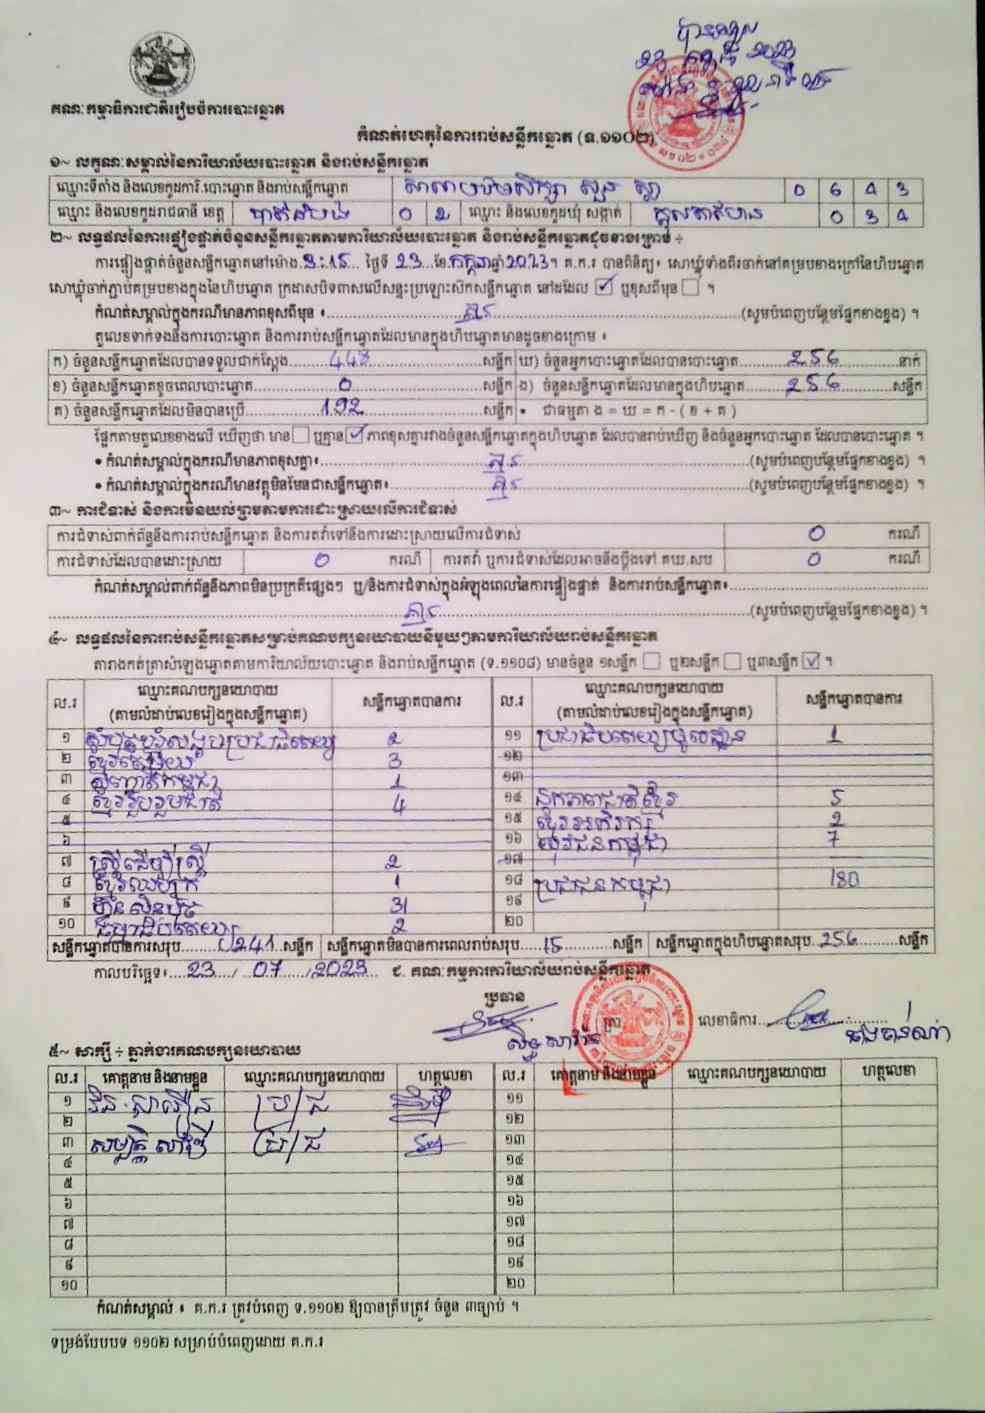 គណៈកម្មាធិការជាតិរៀបចំការបោះឆ្នោត
កំណត់ហេតុនៃការរាប់សន្លឹកឆ្នោត (ទ.១១០២)
១~ លក្ខណៈសម្គាល់នៃការិយាល័យបោះឆ្នោត និងរាប់សន្លឹកឆ្នោត
ឈ្មោះទីតាំង និងលេខកូដការិ.បោះឆ្នោត និងរាប់សន្លឹកឆ្នោត សាលាបឋមសិក្សា 0 6 4 3
ឈ្មោះ និងលេខកូដរាជធានី ខេត្ត បាត់ដំបង 0 2 ឈ្មោះ និងលេខកូដឃុំ សង្កាត់ 0 3 4
២~ លទ្ធផលនៃការផ្ទៀងផ្ទាត់ចំនួនសន្លឹកឆ្នោតតាមការិយាល័យបោះឆ្នោត និងរាប់សន្លឹកឆ្នោតដូចខាងក្រោម ÷
ការផ្ទៀងផ្ទាត់ចំនួនសន្លឹកឆ្នោតនៅម៉ោង 3:15 ថ្ងៃទី 23 ខែ កក្កដា ឆ្នាំ 2023។ គ.ក.រ បានពិនិត្យ៖ សោឃ្លុំទាំងពីរចាក់នៅគម្របខាងក្រៅនៃហិបឆ្នោត
សោឃ្លុំចាក់ភ្ជាប់គម្របខាងក្នុងនៃហិបឆ្នោត ក្រដាសបិទពាសលើសន្ទះប្រឡោះសឹកសន្លឹកឆ្នោត នៅដដែល ☑ ឬខុសពីមុន ☐ ។
កំណត់សម្គាល់ក្នុងករណីមានភាពខុសពីមុន ៖ គ្មាន (សូមបំពេញបន្ថែមផ្នែកខាងខ្នង) ។
តួលេខទាក់ទងនឹងការបោះឆ្នោត និងការរាប់សន្លឹកឆ្នោតដែលមានក្នុងហិបឆ្នោតមានដូចខាងក្រោម ៖
ក) ចំនួនសន្លឹកឆ្នោតដែលបានទទួលជាក់ស្តែង 448 សន្លឹក ឃ) ចំនួនអ្នកបោះឆ្នោតដែលបានបោះឆ្នោត 256 នាក់
ខ) ចំនួនសន្លឹកឆ្នោតខូចពេលបោះឆ្នោត 0 សន្លឹក ង) ចំនួនសន្លឹកឆ្នោតដែលមានក្នុងហិបឆ្នោត 256 សន្លឹក
គ) ចំនួនសន្លឹកឆ្នោតដែលមិនបានប្រើ 192 សន្លឹក • ជាធម្មតា ង = ឃ = ក - ( ខ + គ )
ផ្អែកតាមតួលេខខាងលើ ឃើញថា មាន ☐ ឬគ្មាន ☑ ភាពខុសគ្នារវាងចំនួនសន្លឹកឆ្នោតក្នុងហិបឆ្នោត ដែលបានរាប់ឃើញ និងចំនួនអ្នកបោះឆ្នោត ដែលបានបោះឆ្នោត ។
• កំណត់សម្គាល់ក្នុងករណីមានភាពខុសគ្នា៖ គ្មាន (សូមបំពេញបន្ថែមផ្នែកខាងខ្នង) ។
• កំណត់សម្គាល់ក្នុងករណីមានវត្ថុមិនមែនជាសន្លឹកឆ្នោត៖ គ្មាន (សូមបំពេញបន្ថែមផ្នែកខាងខ្នង) ។
៣~ ការជំទាស់ និងការមិនយល់ព្រមតាមការដោះស្រាយលើការជំទាស់
ការជំទាស់ពាក់ព័ន្ធនឹងការរាប់សន្លឹកឆ្នោត និងការតវ៉ាទៅនឹងការដោះស្រាយលើការជំទាស់ 0 ករណី
ការជំទាស់ដែលបានដោះស្រាយ 0 ករណី ការតវ៉ា ឬការជំទាស់ដែលអាចនឹងប្តឹងទៅ គឃ.សប 0 ករណី
កំណត់សម្គាល់ពាក់ព័ន្ធនឹងភាពមិនប្រក្រតីផ្សេងៗ ឬ/និងការជំទាស់ក្នុងអំឡុងពេលនៃការផ្ទៀងផ្ទាត់ និងការរាប់សន្លឹកឆ្នោត៖
គ្មាន (សូមបំពេញបន្ថែមផ្នែកខាងខ្នង) ។
៤~ លទ្ធផលនៃការរាប់សន្លឹកឆ្នោតសម្រាប់គណបក្សនយោបាយនីមួយៗតាមការិយាល័យរាប់សន្លឹកឆ្នោត
តារាងកត់ត្រាសំឡេងឆ្នោតតាមការិយាល័យបោះឆ្នោត និងរាប់សន្លឹកឆ្នោត (ទ.១១០៨) មានចំនួន ១សន្លឹក ☐ ឬ២សន្លឹក ☐ ឬ៣សន្លឹក ☑ ។
ល.រ ឈ្មោះគណបក្សនយោបាយ (តាមលំដាប់លេខរៀងក្នុងសន្លឹកឆ្នោត) សន្លឹកឆ្នោតបានការ ល.រ ឈ្មោះគណបក្សនយោបាយ (តាមលំដាប់លេខរៀងក្នុងសន្លឹកឆ្នោត) សន្លឹកឆ្នោតបានការ
១ សំបុកឃ្មុំសង្គមប្រជាធិបតេយ្យ 2 ១១ ប្រជាធិបតេយ្យមូលដ្ឋាន 1
២ 3 ១២
៣ សញ្ជាតិកម្ពុជា 1 ១៣
៤ ខ្មែររួបរួមជាតិ 4 ១៤ ឯកភាពជាតិខ្មែរ 5
៥ ១៥ ខ្មែរអភិរក្ស 2
៦ ១៦ យុវជនកម្ពុជា 7
៧ ស្ត្រីដើម្បីស្ត្រី 2 ១៧
៨ ខ្មែរឈប់ក្រ 1 ១៨ ប្រជាជនកម្ពុជា 180
៩ ហ៊្វុនស៊ិនប៉ិច 31 ១៩
១០ ធម្មាធិបតេយ្យ 2 ២០
សន្លឹកឆ្នោតបានការសរុប 241 សន្លឹក សន្លឹកឆ្នោតមិនបានការពេលរាប់សរុប 15 សន្លឹក សន្លឹកឆ្នោតក្នុងហិបឆ្នោតសរុប 256 សន្លឹក
កាលបរិច្ឆេទ៖ 23 / 07 / 2023 ជ. គណៈកម្មការការិយាល័យរាប់សន្លឹកឆ្នោត
ប្រធាន
លេខាធិការ
៥~ សាក្សី ÷ ភ្នាក់ងារគណបក្សនយោបាយ
ល.រ គោត្តនាម និងនាមខ្លួន ឈ្មោះគណបក្សនយោបាយ ហត្ថលេខា ល.រ គោត្តនាម និងនាមខ្លួន ឈ្មោះគណបក្សនយោបាយ ហត្ថលេខា
១ ប្រ/ជ ១១
២ ១២
៣ ប្រ/ជ ១៣
៤ ១៤
៥ ១៥
៦ ១៦
៧ ១៧
៨ ១៨
៩ ១៩
១០ ២០
កំណត់សម្គាល់ ៖ គ.ក.រ ត្រូវបំពេញ ទ.១១០២ ឱ្យបានត្រឹមត្រូវ ចំនួន ៣ច្បាប់ ។
ទម្រង់បែបបទ ១១០២ សម្រាប់បំពេញដោយ គ.ក.រ